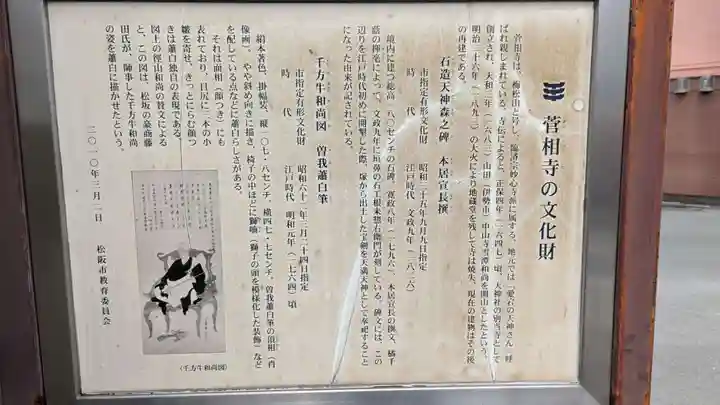 菅相寺の文化財
菅相寺は、梅松山と号し、臨済宗妙心寺派に属する。地元では「愛宕の天神さん」と呼
ばれ親しまれている。寺伝によると、正保四年(一六四七)頃、天神社の別当寺として
創立され、天和三年(一六八三)山田(伊勢市)中山寺雪潭和尚を開山としたという。
明治二十六年(一八九三)の大火により地蔵堂を残して寺は焼失、現在の建物はその後
の再建である。
石造天神森之碑 本居宣長撰
市指定有形文化財 昭和三十五年九月九日指定
時代 江戸時代 文政九年(一八二六)
境内に建つ総高一八〇センチの石碑。寛政八年(一七九六)、本居宣長の撰文、橘千
蔭の揮毫によって、文政九年に垣鼻の石工根来惣右衛門が刻している。碑文には、この
辺りを江戸時代初めに開墾した際、塚から出土した宝剣を天満天神として奉祀すること
になった由来が記されている。
千方牛和尚図 曽我蕭白筆
市指定有形文化財 昭和六十二年三月二十四日指定
時代 江戸時代 明和元年(一七六四)頃
絹本著色、掛幅装、縦一〇七・八センチ、横四七・七センチ。曽我蕭白筆の頂相(肖
像画)。やや斜め向きに描き、椅子の中ほどに獅噛(獅子の頭を模様化した装飾)など
を配している点などに蕭白らしさがある。
それは面相(顔つき)にも
表れており、目尻に三本の小
皺を寄せ、きっとにらむ顔つ
きは蕭白独自の表現である。
図上の徑山和尚の賛文による
と、この図は、松坂の豪商藤
田氏が、師事した千方牛和尚
の姿を蕭白に描かせたという。
二〇一〇年三月一日
松阪市教育委員会
(千方牛和尚図)